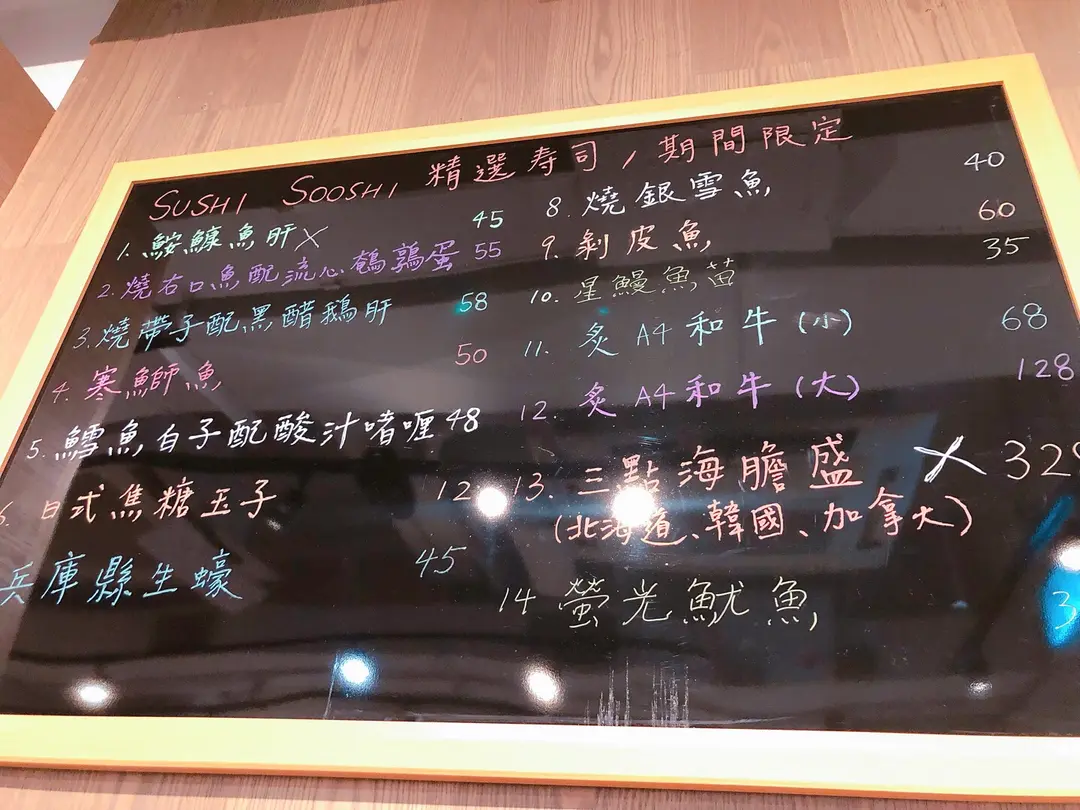 SUSHI SOOSHI 精選寿司/期間限定
1. 鮟鱇魚肝 X 45
2. 燒右口魚配流心鵪鶉蛋 55
3. 燒帶子配黑醋鵝肝 58
4. 寒鰤魚 50
5. 鱈魚白子配酸汁啫喱 48
6. 日式焦糖玉子 12
兵庫縣生蠔 45
8. 燒銀雪魚 40
9. 剝皮魚 60
10. 星鰻魚苗 35
11. 炙A4和牛(小) 68
12. 炙A4和牛(大) 128
13. 三點海膽盛 X 32
(北海道、韓國、加拿大)
14 螢光魷魚 3